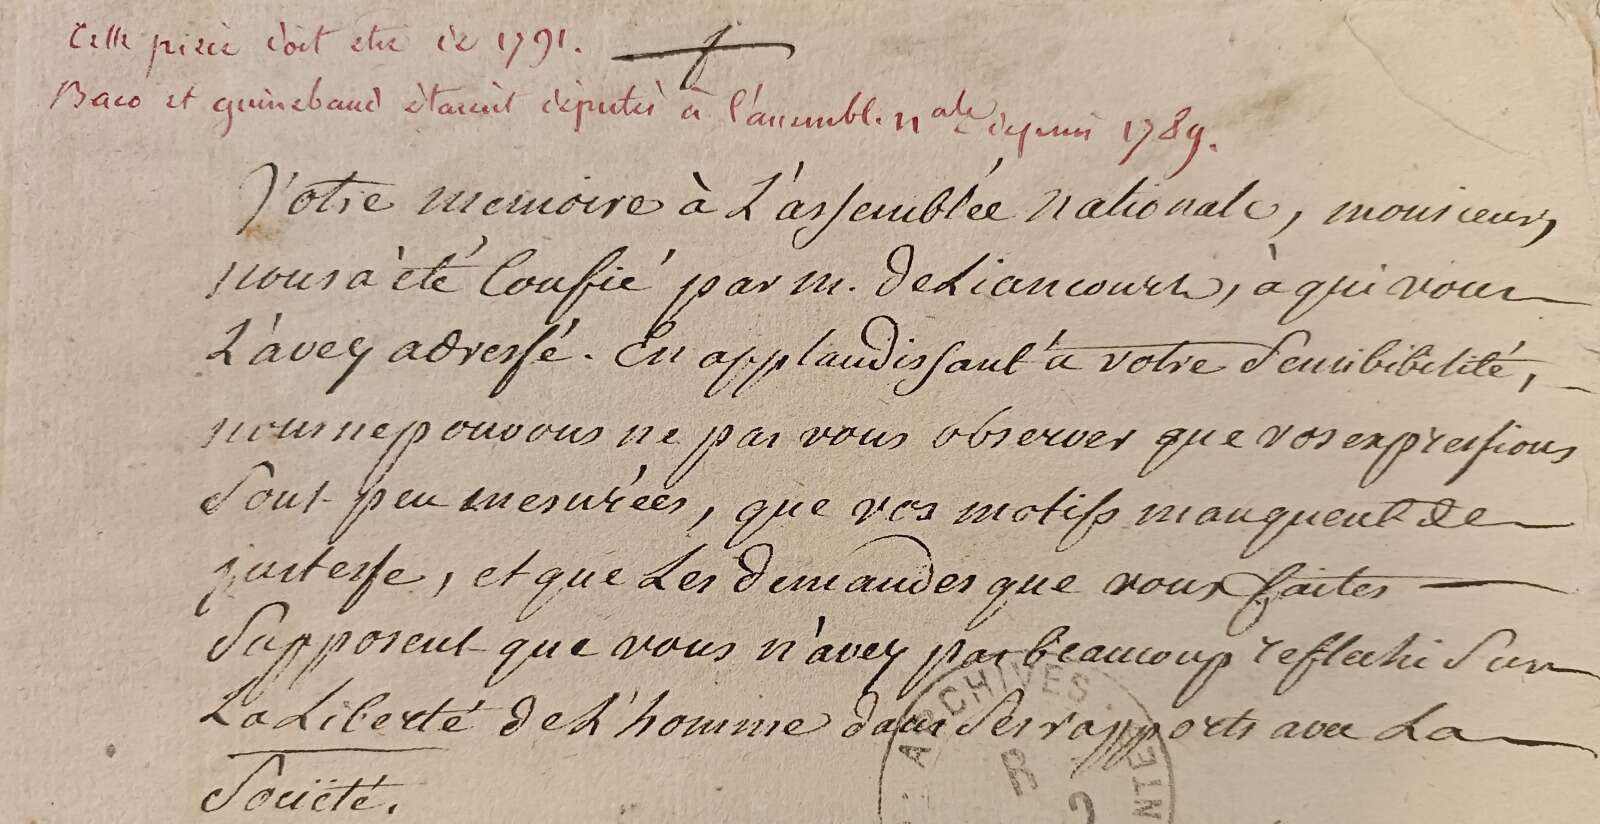 Cette pièce doit etre de 1791.
Baco et guinebaud étaient députés à l'assembl. nale depuis 1789.
Votre memoire à L'assemblée nationale, monsieur,
nous a été Confié par m. de Liancourt, à qui vous
L'avez adressé. En applaudissant à votre Sensibibilité,
nous ne pouvons ne pas vous observer que vos expressions
Sont peu mesurées, que vos motifs manquent de
justesse, et que Les demandes que vous faites
Supposent que vous n'avez pas beaucoup reflechi Sur
La Liberté de L'homme dans Ses rapports avec La
Société.
ARCHIVES